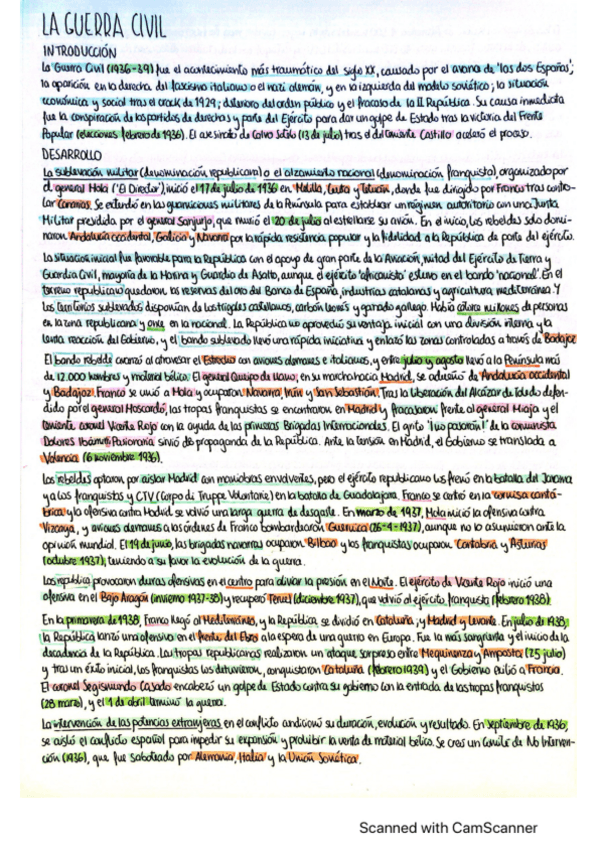 LA GUERRA CIVIL
INTRODUCCIÓN
La Guerra Civil (1936-39) fue el acontecimiento más traumático del siglo XX, causado por el avance de 'las dos Españas';
la aparición en la derecha del fascismo italiano o el nazi alemán, y en la izquierda del modelo soviético; la situación
económica y social tras el crack de 1929; deterioro del orden público y el fracaso de la II República. Su causa inmediata
fue la conspiración de los partidos de derechas y parte del Ejército para dar un golpe de Estado tras la victoria del Frente
Popular (elecciones febrero de 1936). El asesinato de Calvo Sotelo (13 de julio) tras el del teniente Castillo aceleró el proceso.
DESARROLLO
La sublevación militar (denominación republicana) o el alzamiento nacional (denominación franquista), organizado por
el general Mola ('El Director'), inició el 17 de julio de 1936 en Melilla, Ceuta y Tetuán, donde fue dirigido por Franco tras contro-
lar Canarias. Se extendió en las guarniciones militares de la Península para establecer un régimen autoritario con una Junta
Militar presidida por el general Sanjurjo, que murió el 20 de julio al estrellarse su avión. En el inicio, los rebeldes solo domi-
naron Andalucía occidental, Galicia y Navarra por la rápida resistencia popular y la fidelidad a la República de parte del ejército.
La situación inicial fue favorable para la República con el apoyo de gran parte de la Aviación, mitad del Ejército de Tierra y
Guardia Civil, mayoría de la Marina y Guardia de Asalto, aunque el ejército 'africanista' estuvo en el bando 'nacional'. En el
terreno republicano quedaron las reservas del oro del Banco de España, industrias catalanas y agricultura mediterránea. Y
los territorios sublevados disponían de los trigales castellanos, carbón leonés y ganado gallego. Había catorce millones de personas
en la zona republicana y once en la nacional. La República no aprovechó su ventaja inicial con una división interna y la
lenta reacción del Gobierno, y el bando sublevado llevó una rápida iniciativa y enlazó las zonas controladas a través de Badajoz
El bando rebelde avanzó al atravesar el Estrecho con aviones alemanes e italianos, y entre julio y agosto llevó a la Península más
de 12.000 hombres y material bélico. El general Queipo de Llano, en su marcha hacia Madrid, se adueñó de Andalucía occidental
y Badajoz. Franco se unió a Mola y ocuparon Navarra, Irún y San Sebastián. Tras la liberación del Alcázar de Toledo defen-
dido por el general Moscardó, las tropas franquistas se encontraron en Madrid y fracasaron frente al general Miaja y el
teniente coronel Vicente Rojo con la ayuda de las primeras Brigadas Internacionales. El grito '¡No pasarán!' de la comunista
Dolores Ibárruri Pasionaria sirvió de propaganda de la República. Ante la tensión en Madrid, el Gobierno se translada a
Valencia (6 noviembre 1936).
Los rebeldes optaron por aislar Madrid con maniobras envolventes, pero el ejército republicano los frenó en la batalla del Jarama
y a los franquistas y CTV (Corpo di Truppe Volontarie) en la batalla de Guadalajara. Franco se centró en la cornisa cantá-
brica y la ofensiva contra Madrid se volvió una larga guerra de desgaste. En marzo de 1937, Mola inició la ofensiva contra
Vizcaya, y aviones alemanes a las órdenes de Franco bombardearon Guernica (26-4-1937), aunque no lo asumieron ante la
opinión mundial. El 19 de junio, las brigadas navarras ocuparon Bilbao y los franquistas ocuparon Cantabria y Asturias
(octubre 1937), teniendo a su favor la evolución de la guerra.
Los republica provocaron duras ofensivas en el centro para aliviar la presión en el Norte. El ejército de Vicente Rojo inició una
ofensiva en el Bajo Aragón (invierno 1937-38) y recuperó Teruel (diciembre 1937), que volvió al ejército franquista (febrero 1938)
En la primavera de 1938, Franco llegó al Mediterráneo, y la República se dividió en Cataluña, y Madrid y Levante. En julio de 1938,
la República lanzó una ofensiva en el frente del Ebro a la espera de una guerra en Europa. Fue la más sangrienta y el inicio de la
decadencia de la República. Las tropas republicanas realizaron un ataque sorpresa entre Mequinenza y Amposta (25 julio)
y tras un éxito inicial, los franquistas los detuvieron, conquistaron Cataluña (febrero 1939) y el Gobierno exilió a Francia.
El coronel Segismundo Casado encabezó un golpe de Estado contra su gobierno con la entrada de las tropas franquistas
(28 marzo), y el 1 de abril terminó la guerra.
La intervención de las potencias extranjeras en el conflicto condicionó su duración, evolución y resultado. En septiembre de 1936,
se aisló el conflicto español para impedir su expansión y prohibir la venta de material bélico. Se creó un Comité de No Interven-
ción (1936), que fue saboteado por Alemania, Italia y la Unión Soviética.
Scanned with CamScanner